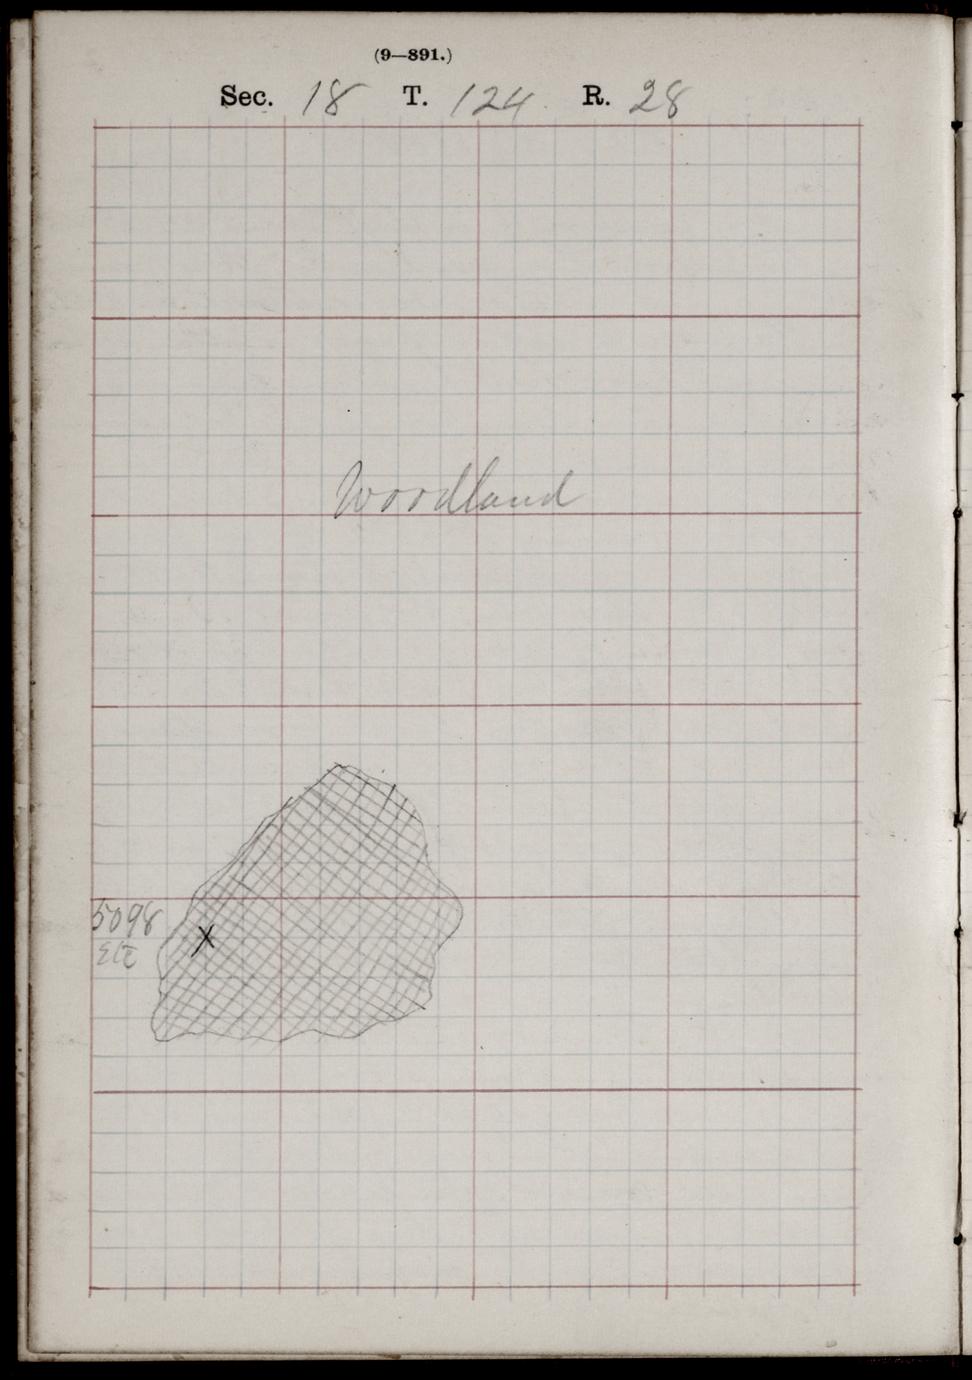 (9—891.)
Sec. 18 T. 124 R. 28
Woodland
5098
X